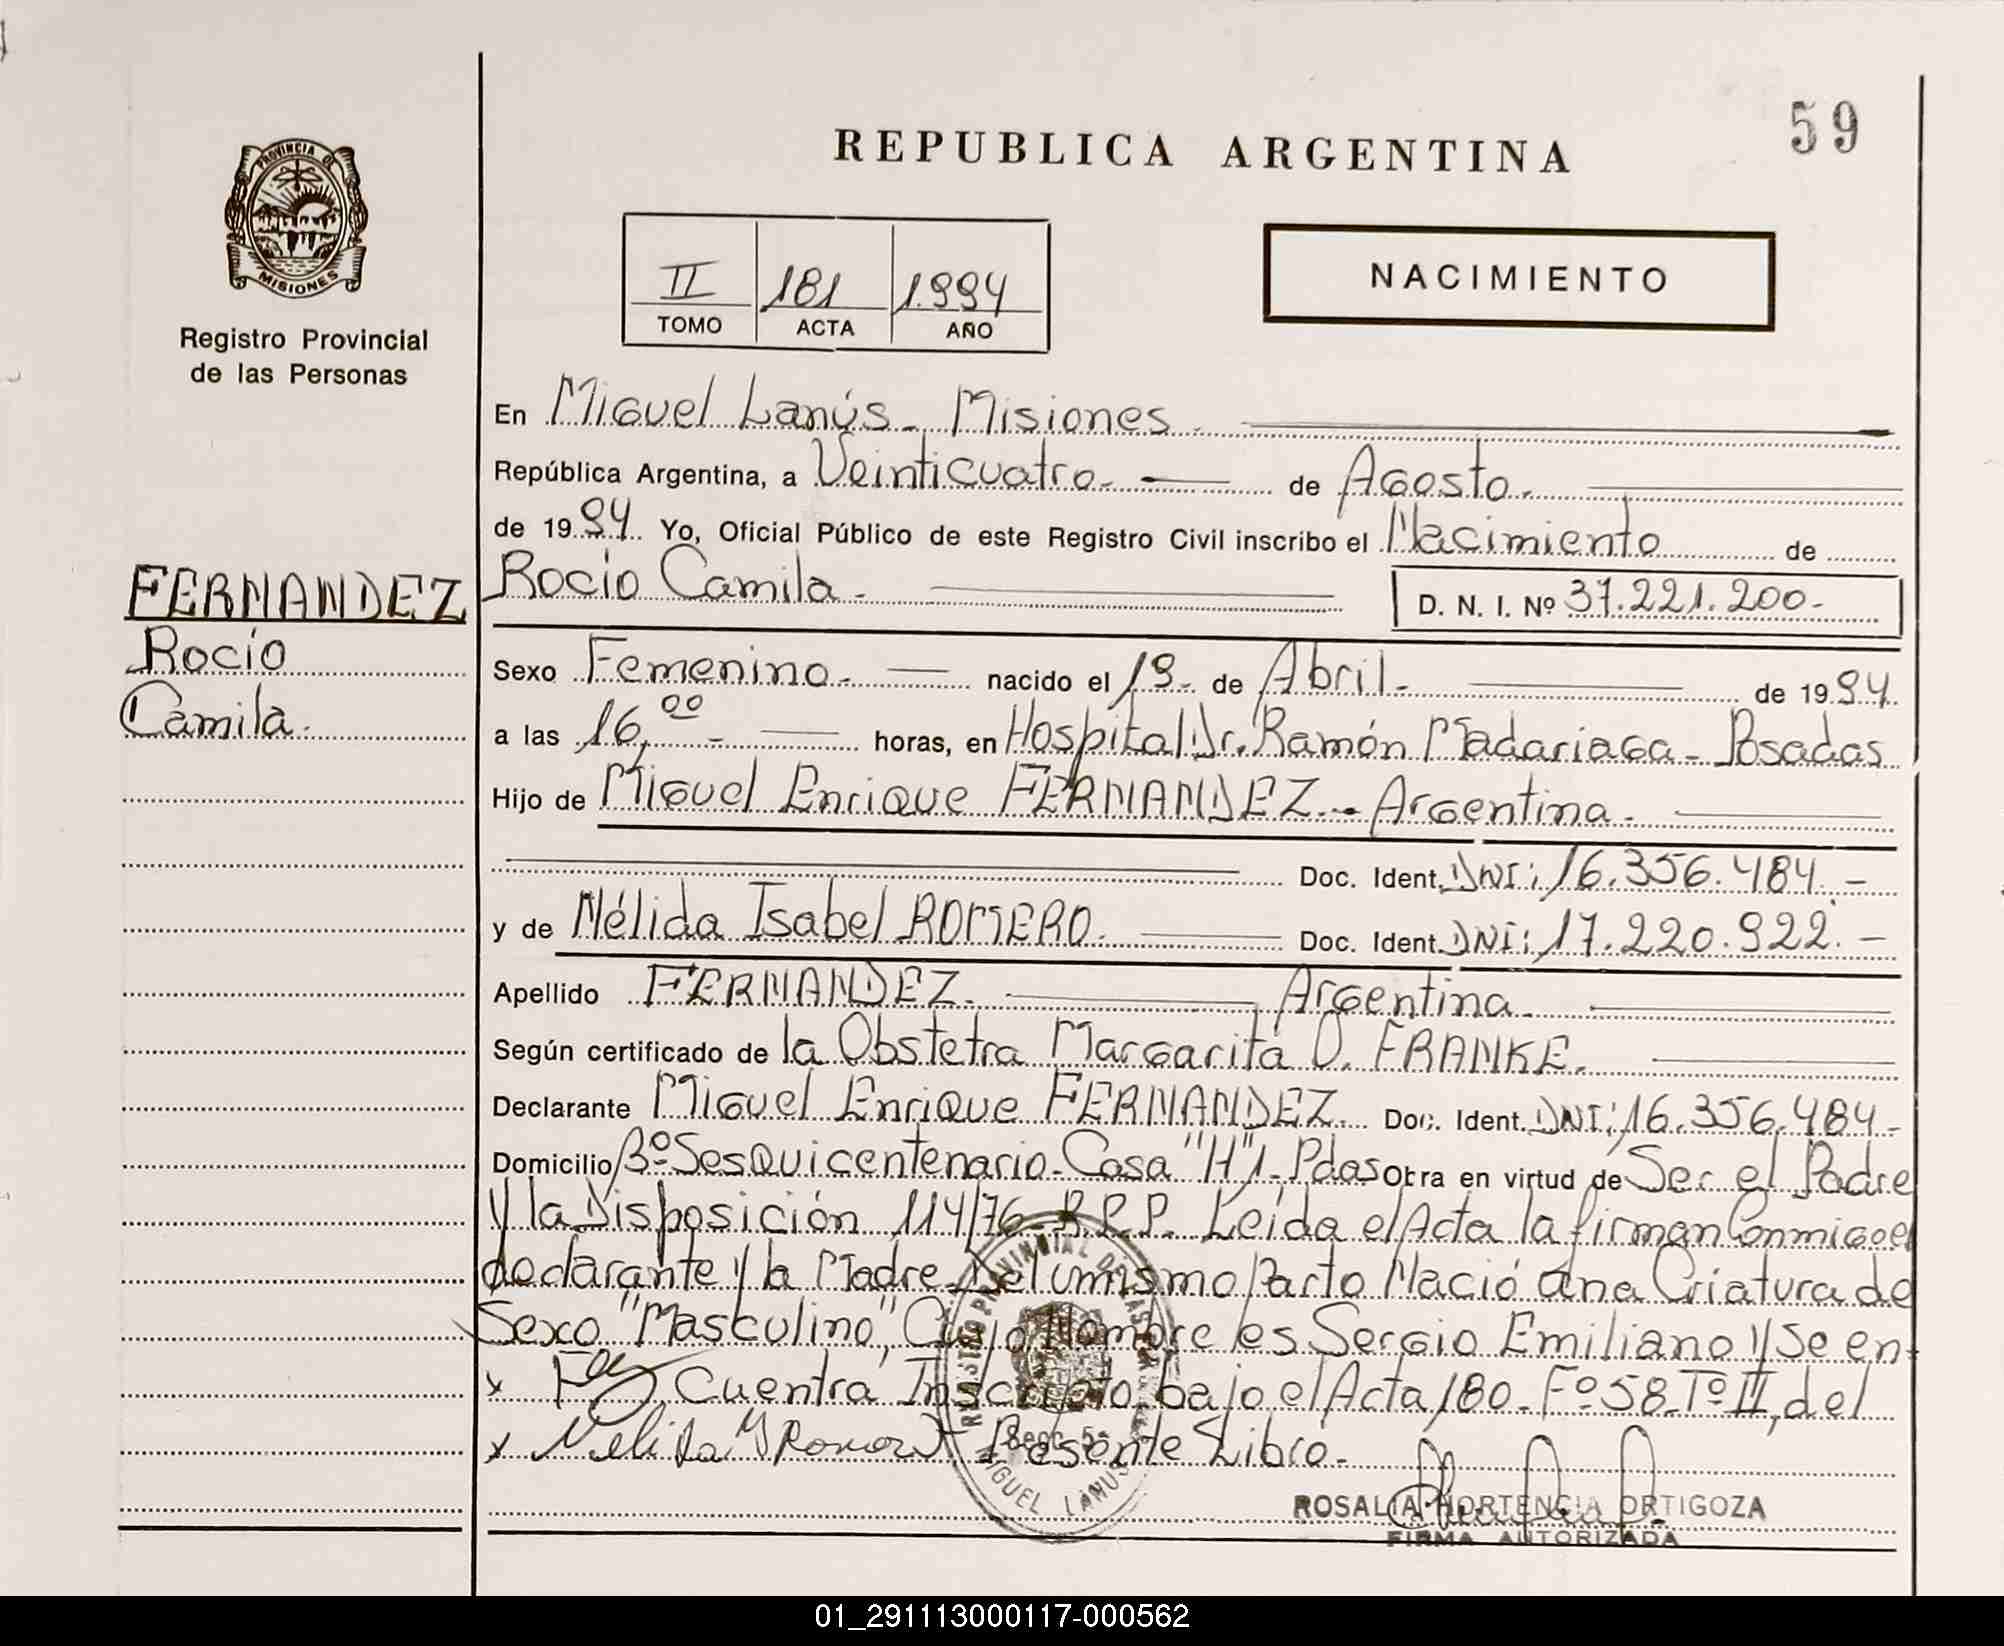 59
REPUBLICA ARGENTINA
PROVINCIA DE
MISIONES
Registro Provincial
de las Personas
II 181 1.994
TOMO ACTA AÑO
NACIMIENTO
En Miguel Lanús - Misiones.
República Argentina, a Veinticuatro. de Agosto.
de 19 94. Yo, Oficial Público de este Registro Civil inscribo el Nacimiento de
FERNANDEZ
Rocío
Camila.
Rocío Camila.
D. N. I. Nº 37.221.200.-
Sexo Femenino. nacido el 19. de Abril. de 19 94.
a las 16,00 - horas, en Hospital Dr. Ramón Madariaga - Posadas
Hijo de Miguel Enrique FERNANDEZ.- Argentina.
Doc. Ident. DNI: 16.356.484.-
y de Nélida Isabel ROMERO. Doc. Ident. DNI: 17.220.922.-
Apellido FERNANDEZ. Argentina.
Según certificado de la Obstetra Margarita O. FRANKE.
Declarante Miguel Enrique FERNANDEZ. Doc. Ident. DNI: 16.356.484-
Domicilio Bº Sesquicentenario. Casa "H" 1. Pdas Obra en virtud de Ser el Padre
y la Disposición 114/76-R.P.P. Leída el Acta la firman Conmigo el
declarante y la Madre. Del mismo Parto Nació una Criatura de
Sexo "Masculino", Cuyo Nombre es Sergio Emiliano y Se en-
x Cuentra Inscripto bajo el Acta 180. Fº 58. Tº II, del
x Nelida Y Romero Presente Libro.
REGISTRO PROVINCIAL DE LAS PERSONAS
MIGUEL LANUS
ROSALIA HORTENCIA ORTIGOZA
FIRMA AUTORIZADA
01_291113000117-000562